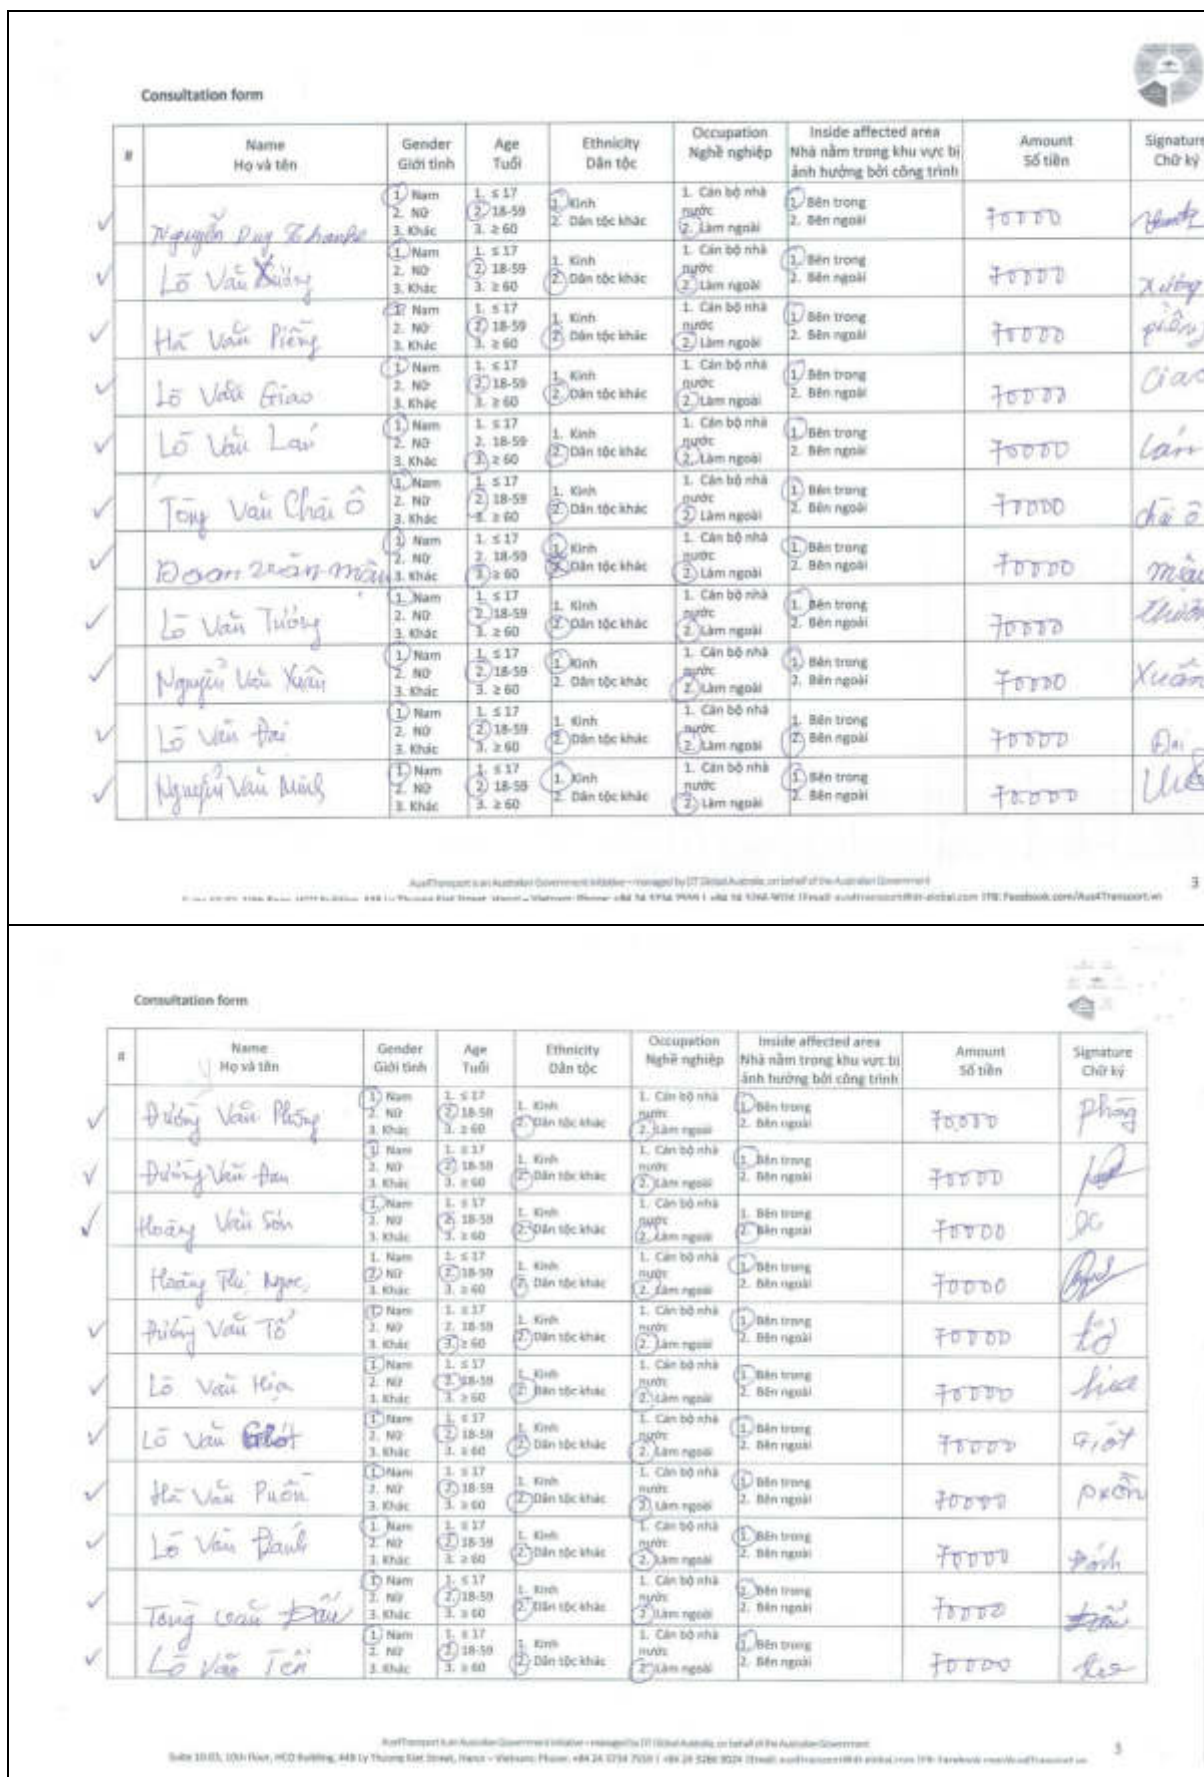 Consultation form
# Name Họ và tên Gender Giới tính Age Tuổi Ethnicity Dân tộc Occupation Nghề nghiệp Inside affected area Nhà nằm trong khu vực bị ảnh hưởng bởi công trình Amount Số tiền Signature Chữ ký
Nguyễn Duy 1. Nam 2. Nữ 3. Khác 1. ≤ 17 2. 18-59 3. ≥ 60 1. Kinh 2. Dân tộc khác 1. Cán bộ nhà nước 2. Làm ngoài 1. Bên trong 2. Bên ngoài 70000
Lò Văn Xưởng 1. Nam 2. Nữ 3. Khác 1. ≤ 17 2. 18-59 3. ≥ 60 1. Kinh 2. Dân tộc khác 1. Cán bộ nhà nước 2. Làm ngoài 1. Bên trong 2. Bên ngoài 70000 Xưởng
Hà Văn Piếng 1. Nam 2. Nữ 3. Khác 1. ≤ 17 2. 18-59 3. ≥ 60 1. Kinh 2. Dân tộc khác 1. Cán bộ nhà nước 2. Làm ngoài 1. Bên trong 2. Bên ngoài 70000
Lò Văn Giao 1. Nam 2. Nữ 3. Khác 1. ≤ 17 2. 18-59 3. ≥ 60 1. Kinh 2. Dân tộc khác 1. Cán bộ nhà nước 2. Làm ngoài 1. Bên trong 2. Bên ngoài 70000 Giao
Lò Văn Lán 1. Nam 2. Nữ 3. Khác 1. ≤ 17 2. 18-59 3. ≥ 60 1. Kinh 2. Dân tộc khác 1. Cán bộ nhà nước 2. Làm ngoài 1. Bên trong 2. Bên ngoài 70000 Lán
Tòng Văn Chài Ô 1. Nam 2. Nữ 3. Khác 1. ≤ 17 2. 18-59 3. ≥ 60 1. Kinh 2. Dân tộc khác 1. Cán bộ nhà nước 2. Làm ngoài 1. Bên trong 2. Bên ngoài 70000 chài ô
Đoàn mậu 1. Nam 2. Nữ 3. Khác 1. ≤ 17 2. 18-59 3. ≥ 60 1. Kinh 2. Dân tộc khác 1. Cán bộ nhà nước 2. Làm ngoài 1. Bên trong 2. Bên ngoài 70000 mậu
Lò Văn Tưởng 1. Nam 2. Nữ 3. Khác 1. ≤ 17 2. 18-59 3. ≥ 60 1. Kinh 2. Dân tộc khác 1. Cán bộ nhà nước 2. Làm ngoài 1. Bên trong 2. Bên ngoài 70000
Nguyễn Văn Xuân 1. Nam 2. Nữ 3. Khác 1. ≤ 17 2. 18-59 3. ≥ 60 1. Kinh 2. Dân tộc khác 1. Cán bộ nhà nước 2. Làm ngoài 1. Bên trong 2. Bên ngoài 70000 Xuân
Lò Văn Đại 1. Nam 2. Nữ 3. Khác 1. ≤ 17 2. 18-59 3. ≥ 60 1. Kinh 2. Dân tộc khác 1. Cán bộ nhà nước 2. Làm ngoài 1. Bên trong 2. Bên ngoài 70000 Đại
Nguyễn Văn Minh 1. Nam 2. Nữ 3. Khác 1. ≤ 17 2. 18-59 3. ≥ 60 1. Kinh 2. Dân tộc khác 1. Cán bộ nhà nước 2. Làm ngoài 1. Bên trong 2. Bên ngoài 70.000
Aus4Transport is an Australian Government initiative – managed by DT Global Australia, on behalf of the Australian Government
3
Consultation form
# Name Họ và tên Gender Giới tính Age Tuổi Ethnicity Dân tộc Occupation Nghề nghiệp Inside affected area Nhà nằm trong khu vực bị ảnh hưởng bởi công trình Amount Số tiền Signature Chữ ký
Đường Văn Phóng 1. Nam 2. Nữ 3. Khác 1. ≤ 17 2. 18-59 3. ≥ 60 1. Kinh 2. Dân tộc khác 1. Cán bộ nhà nước 2. Làm ngoài 1. Bên trong 2. Bên ngoài 70.000 Phóng
Đường Văn Đan 1. Nam 2. Nữ 3. Khác 1. ≤ 17 2. 18-59 3. ≥ 60 1. Kinh 2. Dân tộc khác 1. Cán bộ nhà nước 2. Làm ngoài 1. Bên trong 2. Bên ngoài 70000
Hoàng Văn Sơn 1. Nam 2. Nữ 3. Khác 1. ≤ 17 2. 18-59 3. ≥ 60 1. Kinh 2. Dân tộc khác 1. Cán bộ nhà nước 2. Làm ngoài 1. Bên trong 2. Bên ngoài 70000
Hoàng Thị Ngọc 1. Nam 2. Nữ 3. Khác 1. ≤ 17 2. 18-59 3. ≥ 60 1. Kinh 2. Dân tộc khác 1. Cán bộ nhà nước 2. Làm ngoài 1. Bên trong 2. Bên ngoài 70000
Đường Văn Tố 1. Nam 2. Nữ 3. Khác 1. ≤ 17 2. 18-59 3. ≥ 60 1. Kinh 2. Dân tộc khác 1. Cán bộ nhà nước 2. Làm ngoài 1. Bên trong 2. Bên ngoài 70000
Lò Văn Hịa 1. Nam 2. Nữ 3. Khác 1. ≤ 17 2. 18-59 3. ≥ 60 1. Kinh 2. Dân tộc khác 1. Cán bộ nhà nước 2. Làm ngoài 1. Bên trong 2. Bên ngoài 70000
Lò Văn Giót 1. Nam 2. Nữ 3. Khác 1. ≤ 17 2. 18-59 3. ≥ 60 1. Kinh 2. Dân tộc khác 1. Cán bộ nhà nước 2. Làm ngoài 1. Bên trong 2. Bên ngoài 70000 Giót
Hà Văn Puồn 1. Nam 2. Nữ 3. Khác 1. ≤ 17 2. 18-59 3. ≥ 60 1. Kinh 2. Dân tộc khác 1. Cán bộ nhà nước 2. Làm ngoài 1. Bên trong 2. Bên ngoài 70000 Puồn
Lò Văn Đánh 1. Nam 2. Nữ 3. Khác 1. ≤ 17 2. 18-59 3. ≥ 60 1. Kinh 2. Dân tộc khác 1. Cán bộ nhà nước 2. Làm ngoài 1. Bên trong 2. Bên ngoài 70000 Đánh
Tòng Văn Đấu 1. Nam 2. Nữ 3. Khác 1. ≤ 17 2. 18-59 3. ≥ 60 1. Kinh 2. Dân tộc khác 1. Cán bộ nhà nước 2. Làm ngoài 1. Bên trong 2. Bên ngoài 70000
Lò Văn Tến 1. Nam 2. Nữ 3. Khác 1. ≤ 17 2. 18-59 3. ≥ 60 1. Kinh 2. Dân tộc khác 1. Cán bộ nhà nước 2. Làm ngoài 1. Bên trong 2. Bên ngoài 70000
Aus4Transport is an Australian Government initiative – managed by DT Global Australia, on behalf of the Australian Government
Suite 10.03, 10th Floor, HCO Building, 44B Ly Thuong Kiet Street, Hanoi – Vietnam